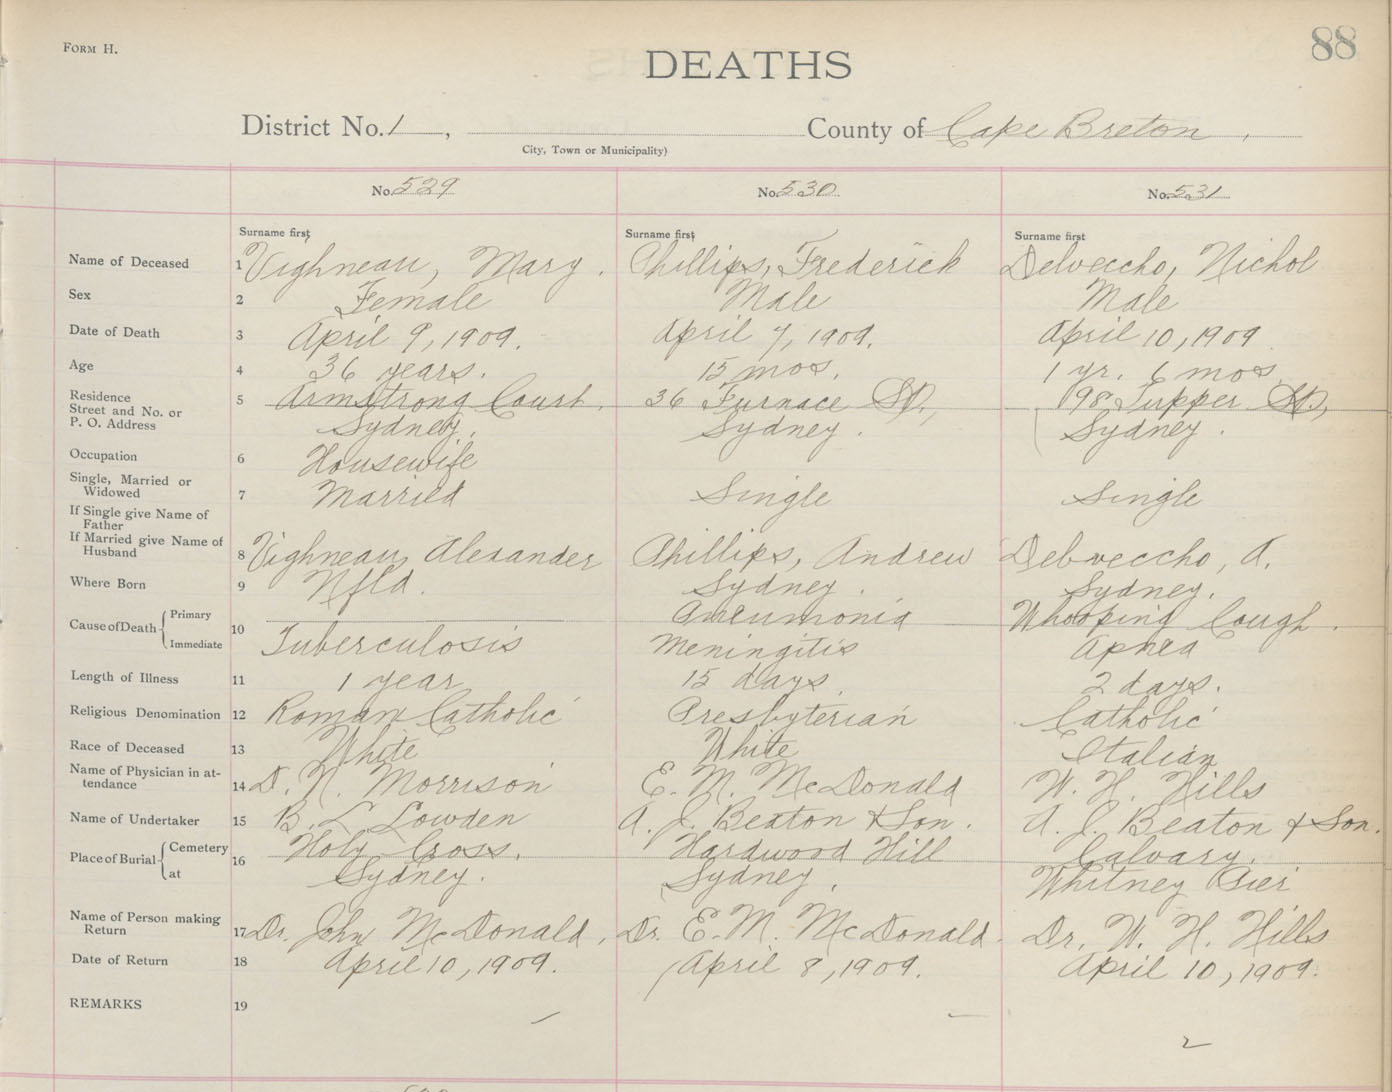 Form H.
88
DEATHS
District No. 1, County of Cape Breton,
City, Town or Municipality)
No. 529 No. 530 No. 531
Surname first Surname first Surname first
Name of Deceased 1 Vighneau, Mary. Phillips, Frederick Delveccho, Nichol
Sex 2 Female Male Male
Date of Death 3 April 9, 1909. April 7, 1909. April 10, 1909
Age 4 36 years. 15 mos. 1 yr. 6 mos
Residence
Street and No. or 5 Armstrong Court. 36 Furnace St., 198 Tupper St,
P. O. Address Sydney. Sydney. Sydney.
Occupation 6 Housewife
Single, Married or
Widowed 7 Married Single Single
If Single give Name of
Father
If Married give Name of
Husband 8 Vighneau, Alexander Phillips, Andrew Delveccho, A.
Where Born 9 Nfld. Sydney. Sydney.
Cause of Death Primary 10 Pneumonia Whooping Cough.
Immediate Tuberculosis Meningitis Apnea
Length of Illness 11 1 year 15 days. 2 days.
Religious Denomination 12 Roman Catholic Presbyterian Catholic
Race of Deceased 13 White White Italian
Name of Physician in at-
tendance 14 D. N. Morrison E. M. McDonald W. H. Hills
Name of Undertaker 15 B. L Lowden A. J. Beaton & Son. A. J. Beaton & Son.
Place of Burial Cemetery 16 Holy Cross. Hardwood Hill Calvary.
at Sydney. Sydney. Whitney Pier
Name of Person making
Return 17 Dr. John McDonald. Dr. E. M. McDonald. Dr. W. H. Hills
Date of Return 18 April 10, 1909. April 8, 1909. April 10, 1909.
REMARKS 19
2